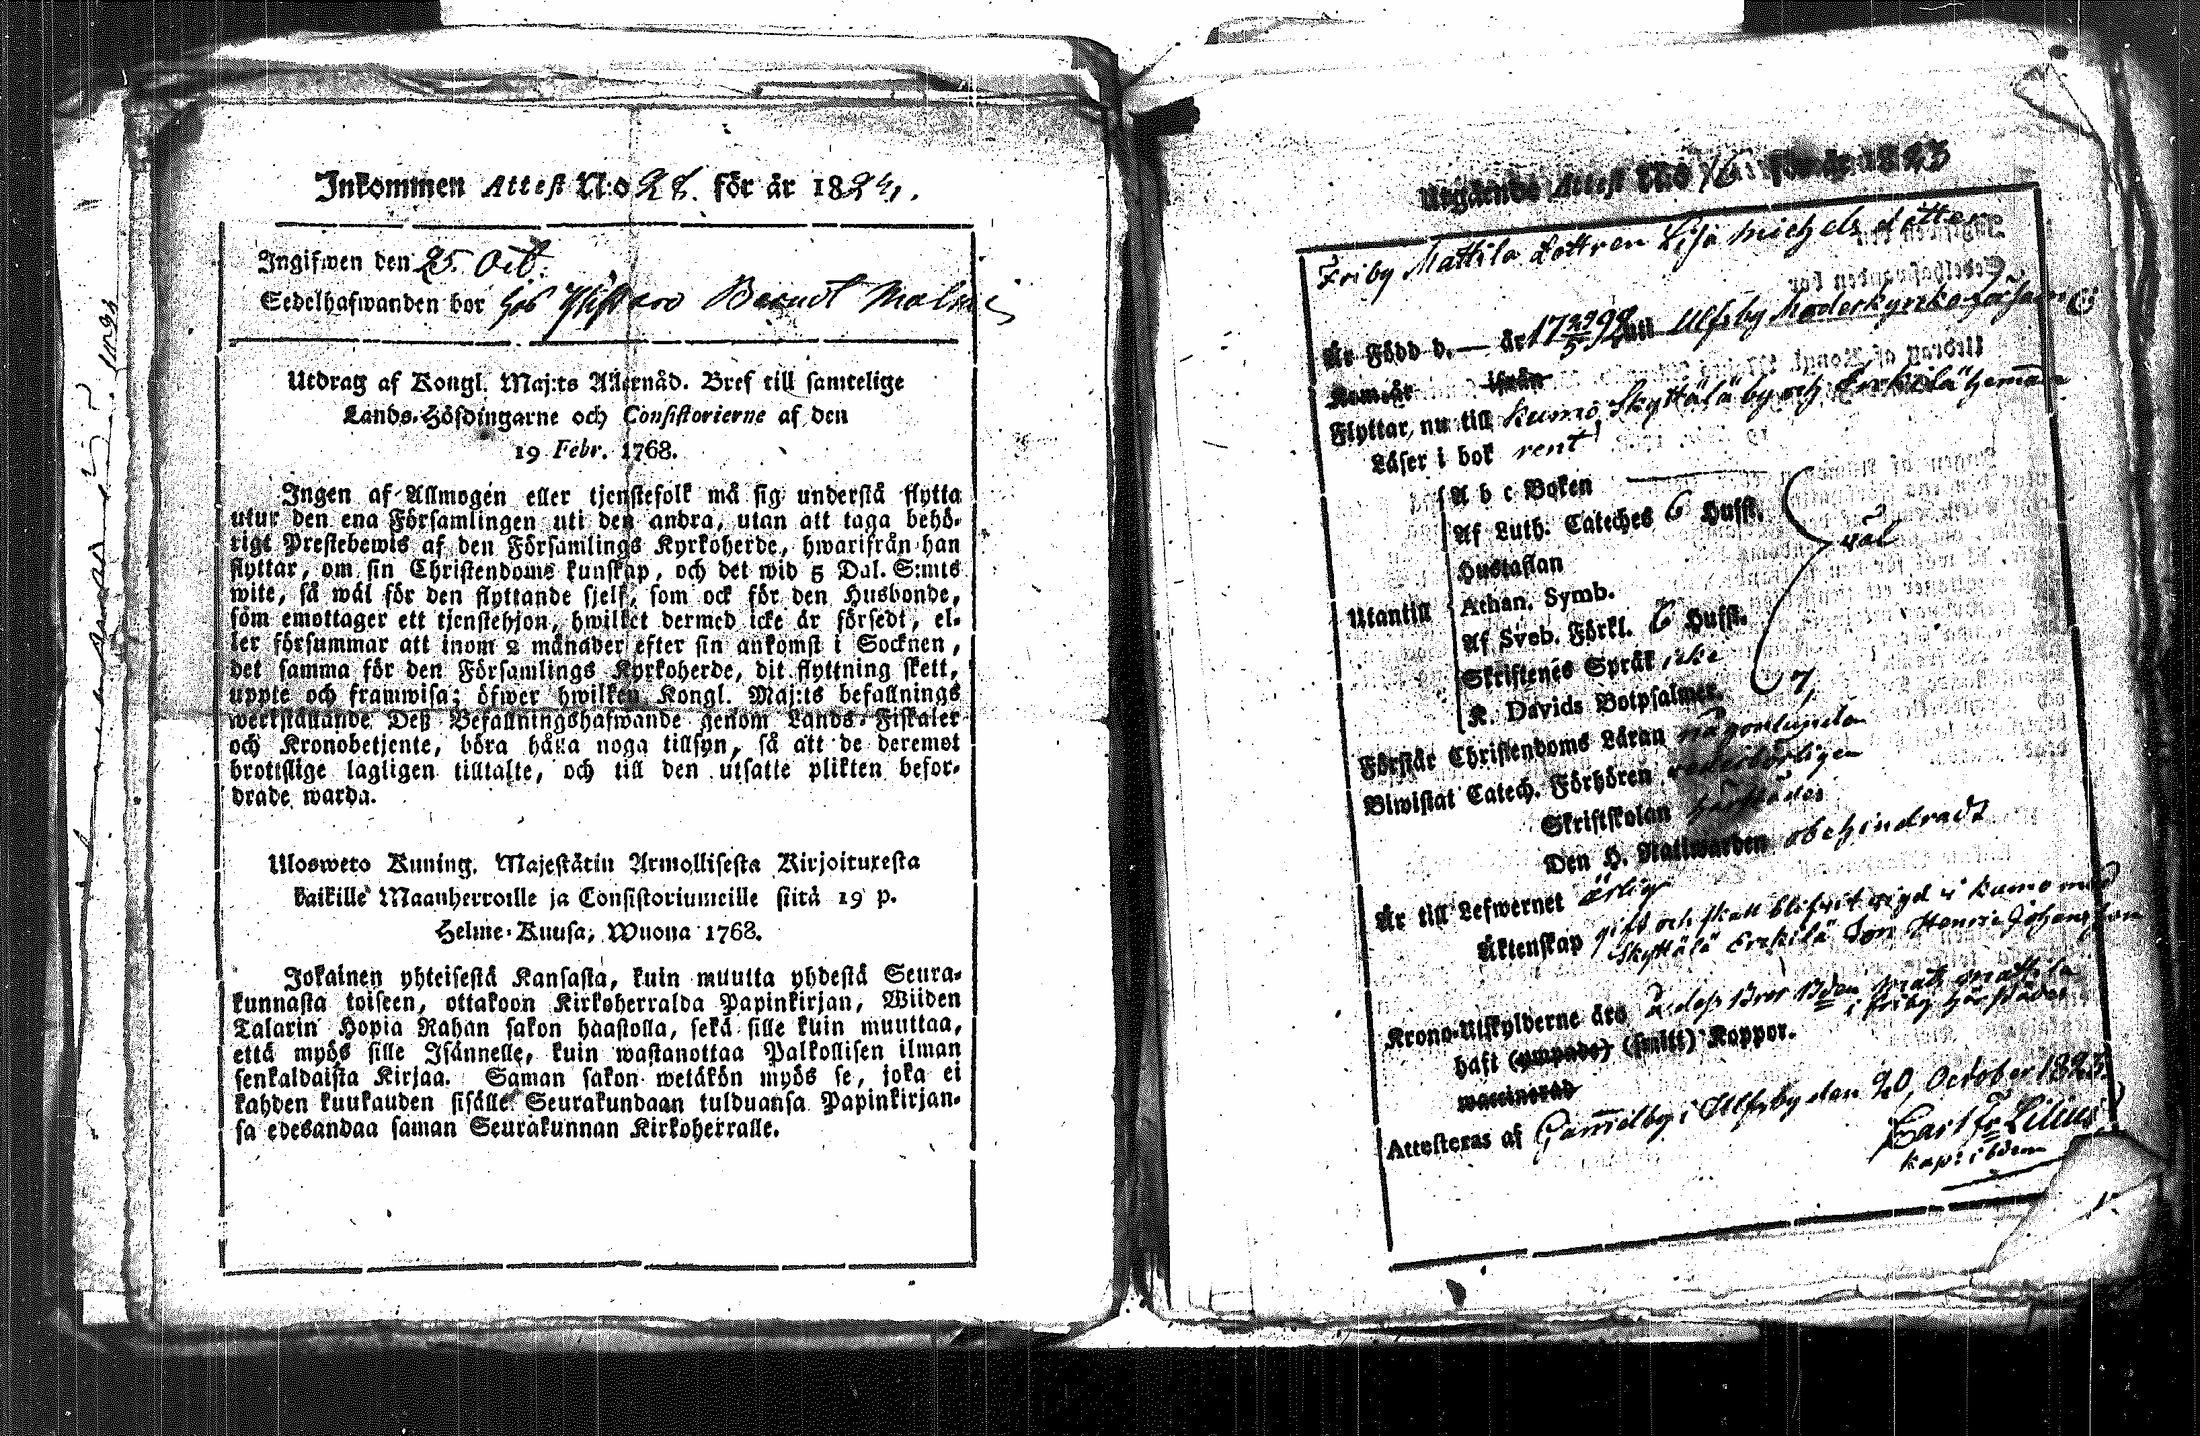 Inkommen Attest N:o 28. för år 1824.
Ingifwen den 25. Oct.
Sedelhafwanden bor hos Berndt Malm
Utdrag af Kongl. Maj:ts Allernåd. Bref till samtelige
Lands-Höfdingarne och Consistorierne af den
19 Febr. 1768.
Ingen af Allmogen eller tjenstefolk må sig understå flytta
utur den ena Församlingen uti den andra, utan att taga behö-
rigt Prestebewis af den Församlings Kyrkoherde, hwarifrån han
flyttar, om sin Christendoms kunskap, och det wid 5 Dal. S:mts
wite, så wäl för den flyttande sjelf, som ock för den Husbonde,
som emottager ett tjenstehjon, hwilket dermed icke är försedt, el-
ler försummar att inom 2 månader efter sin ankomst i Socknen,
det samma för den Församlings Kyrkoherde, dit flyttning skett,
uppte och framwisa; öfwer hwilken Kongl. Maj:ts befallnings
werkställande Deß Befallningshafwande genom Lands-Fiskaler
och Kronobetjente, böra hålla noga tillsyn, så att de deremot
brottslige lagligen tilltalte, och till den utsatte plikten befor-
drade warda.
Ulosweto Kuning. Majestätin Armollisesta Kirjoituxesta
kaikille Maanherroille ja Consistoriumeille siitä 19 p.
Helme-Kuusa, Wuona 1768.
Jokainen yhteisestä Kansasta, kuin muutta yhdestä Seura-
kunnasta toiseen, ottakoon Kirkoherralda Papinkirjan, Wiiden
Talarin Hopia Rahan sakon haastolla, sekä sille kuin muuttaa,
että myös sille Isännelle, kuin wastanottaa Palkollisen ilman
senkaldaista Kirjaa. Saman sakon wetäkön myös se, joka ei
kahden kuukauden sisälle Seurakundaan tulduansa Papinkirjan-
sa edesandaa saman Seurakunnan Kirkoherralle.
Utgående Attest N:o 16 för år 1823
Friby Mattila Dottren Lisa Michelsdotter
Är Född d. — år 17 29/5 98 uti Ulfsby Moderkyrko
Kom år ifrån
Flyttar nu till Kumo Skyttälä by och Erckilä heman
Läser i bok rent
Utantill
A b c Boken
Af Luth. Cateches 6 Hufst.
Hustaflan
Athan. Symb.
Af Sveb. Förkl. 6 Hufst.
Skriftenes Språk icke
K. Davids Botpsalmer. 7,
väl
Förstår Christendoms Läran någorlunda
Biwistat Catech. Förhören wederbörligen
Skriftskolan härstädes
Den H. Nattwarden obehindradt
Är till Lefwernet ärlig
Äktenskap gift och skall blifvit vigd i Kumo med
Skyttälä Erckilä Son Henric Johansson
Krono-Utskylderne äro
i Friby härstädes
haft (ympade) (smitt) Koppor.
waccinerad
Attesteras af Gammelby i Ulfsby den 20, October 1823
Carl Fr Lilius